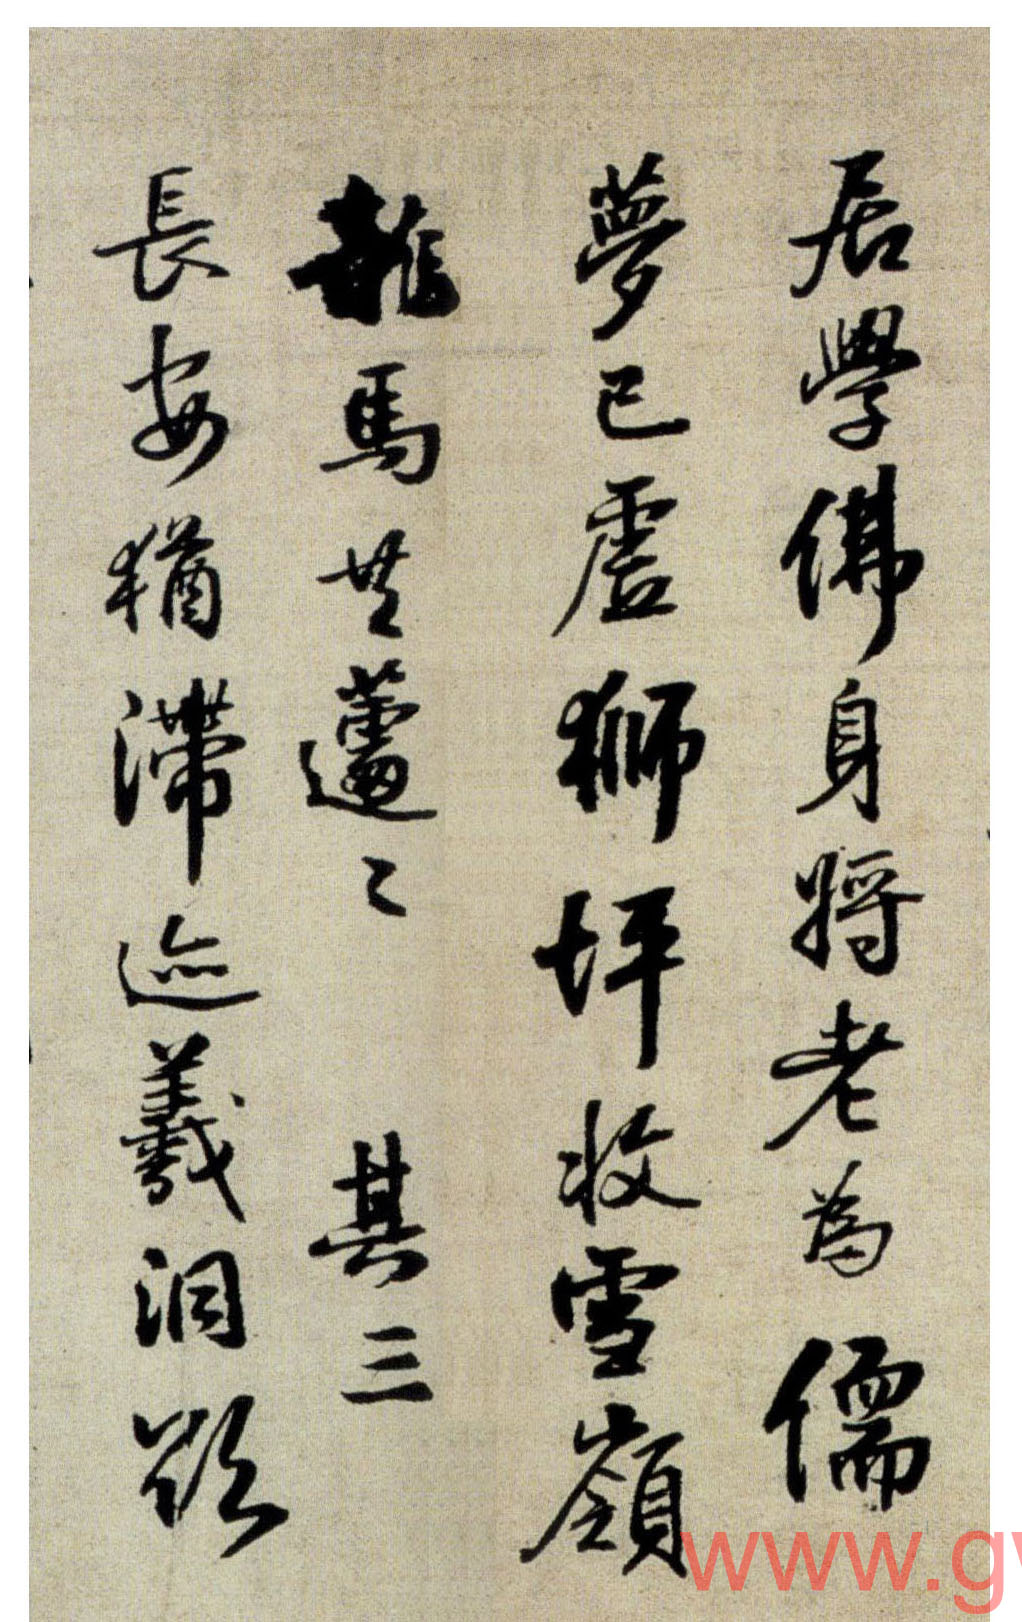 居學佛身將老為儒
夢已虛獅坪收雪嶺
龍馬共蘧〻 其三
長安猶滯迹羲洞欲
www.gv